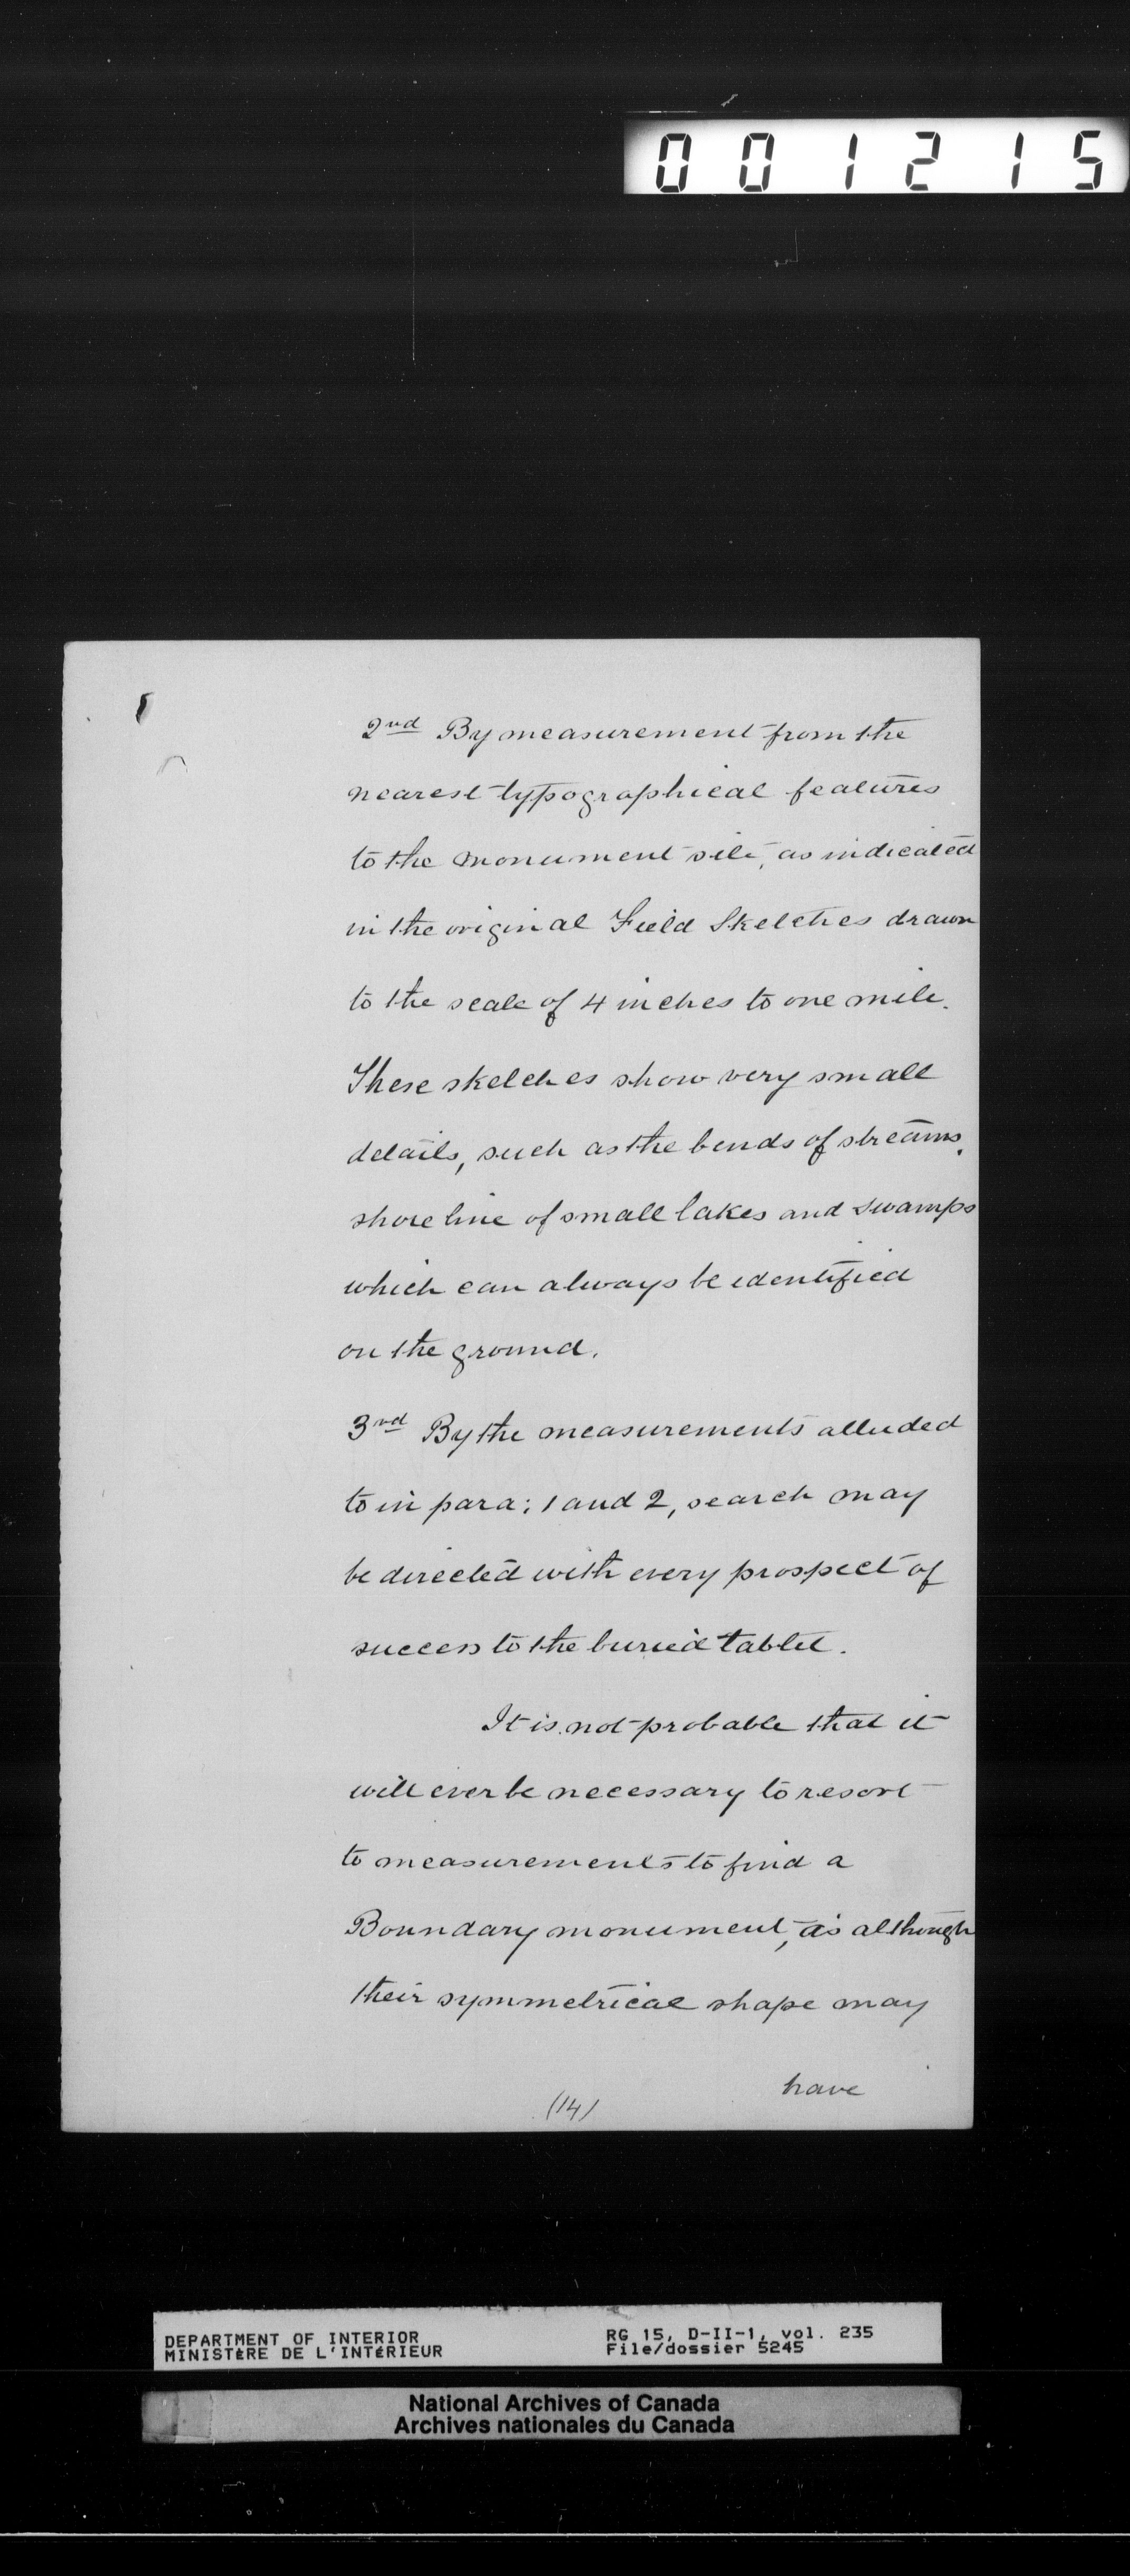 001215
2nd By measurement from the
nearest typographical features
to the monument site, as indicated
in the original Field Sketches drawn
to the scale of 4 inches to one mile.
These sketches show very small
details, such as the bends of streams,
shore line of small lakes and swamps
which can always be identified
on the ground.
3rd By the measurements alluded
to in para: 1 and 2, search may
be directed with every prospect of
success to the buried tablet.
It is not probable that it
will ever be necessary to resort
to measurements to find a
Boundary monument, as although
their symmetrical shape may
have
(14)
DEPARTMENT OF INTERIOR RG 15, D-II-1, vol. 235
MINISTÈRE DE L'INTÉRIEUR File/dossier 5245
National Archives of Canada
Archives nationales du Canada